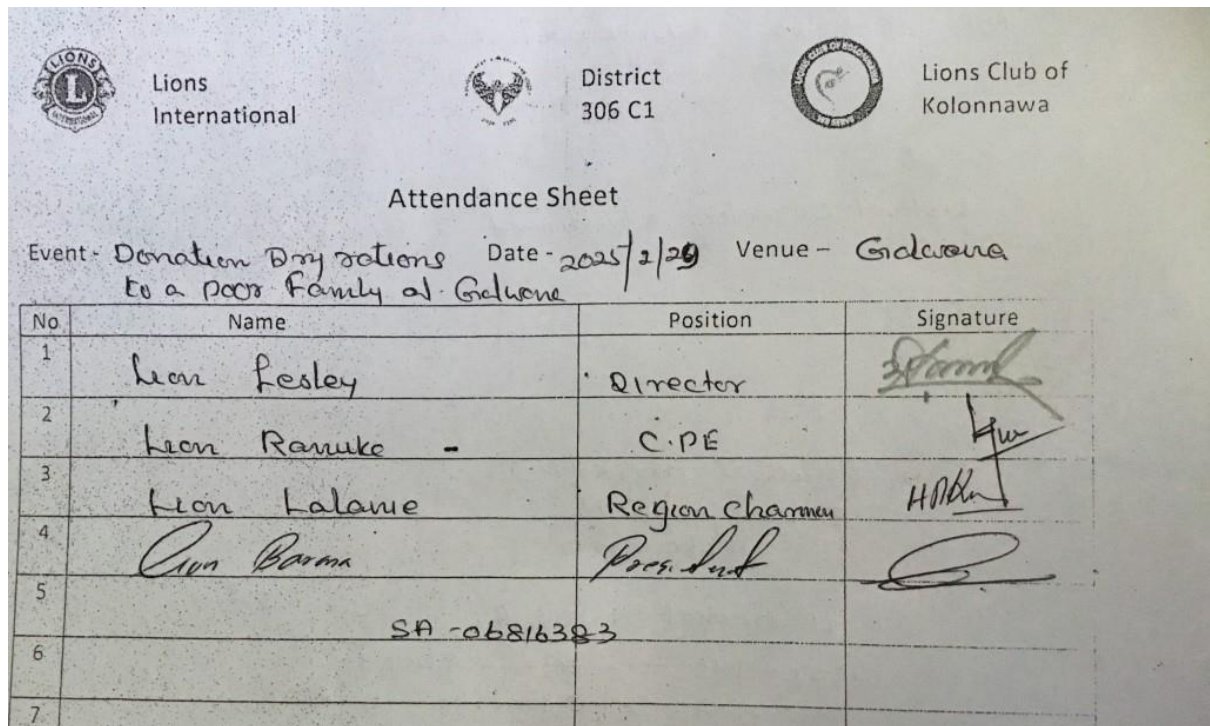 Lions
International
District
306 C1
Lions Club of
Kolonnawa
Attendance Sheet
Event - Donation Dry rations Date - 2025/2/29 Venue - Galwana
to a poor Family at Galwana
No Name Position Signature
1 Lion Lesley Director
2 Lion Ranuke - C.PE
3 Lion Lalanie Region Chairmen
4 Lion Barma President
5
SA -06816383
6
7